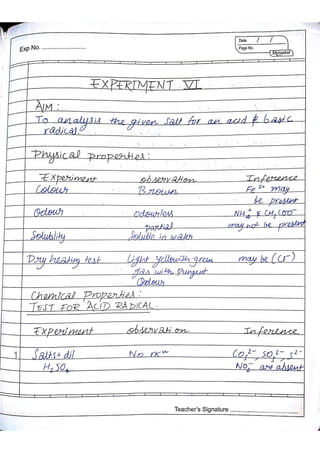 Exp No. ........................
Date / /
Page No.
EXPERIMENT VI
AIM :
To analysis the given salt for an acid & basic
radical.
Physical properties :
Experiment observation Inference
Colour Brown Fe³⁺ may
be present
Odour odourless NH₄⁺ & CH₃COO⁻
may not be present
Solubility partial
soluble in water
Dry heating test light yellowish green may be (Cl⁻)
gas with Pungent
Odour
Chemical Properties :
TEST FOR ACID RADICAL.
Experiment observation Inference
1 Salt + dil No rxⁿ CO₃²⁻, SO₃²⁻, S²⁻
H₂SO₄ NO₂⁻ are absent
Teacher's Signature ........................